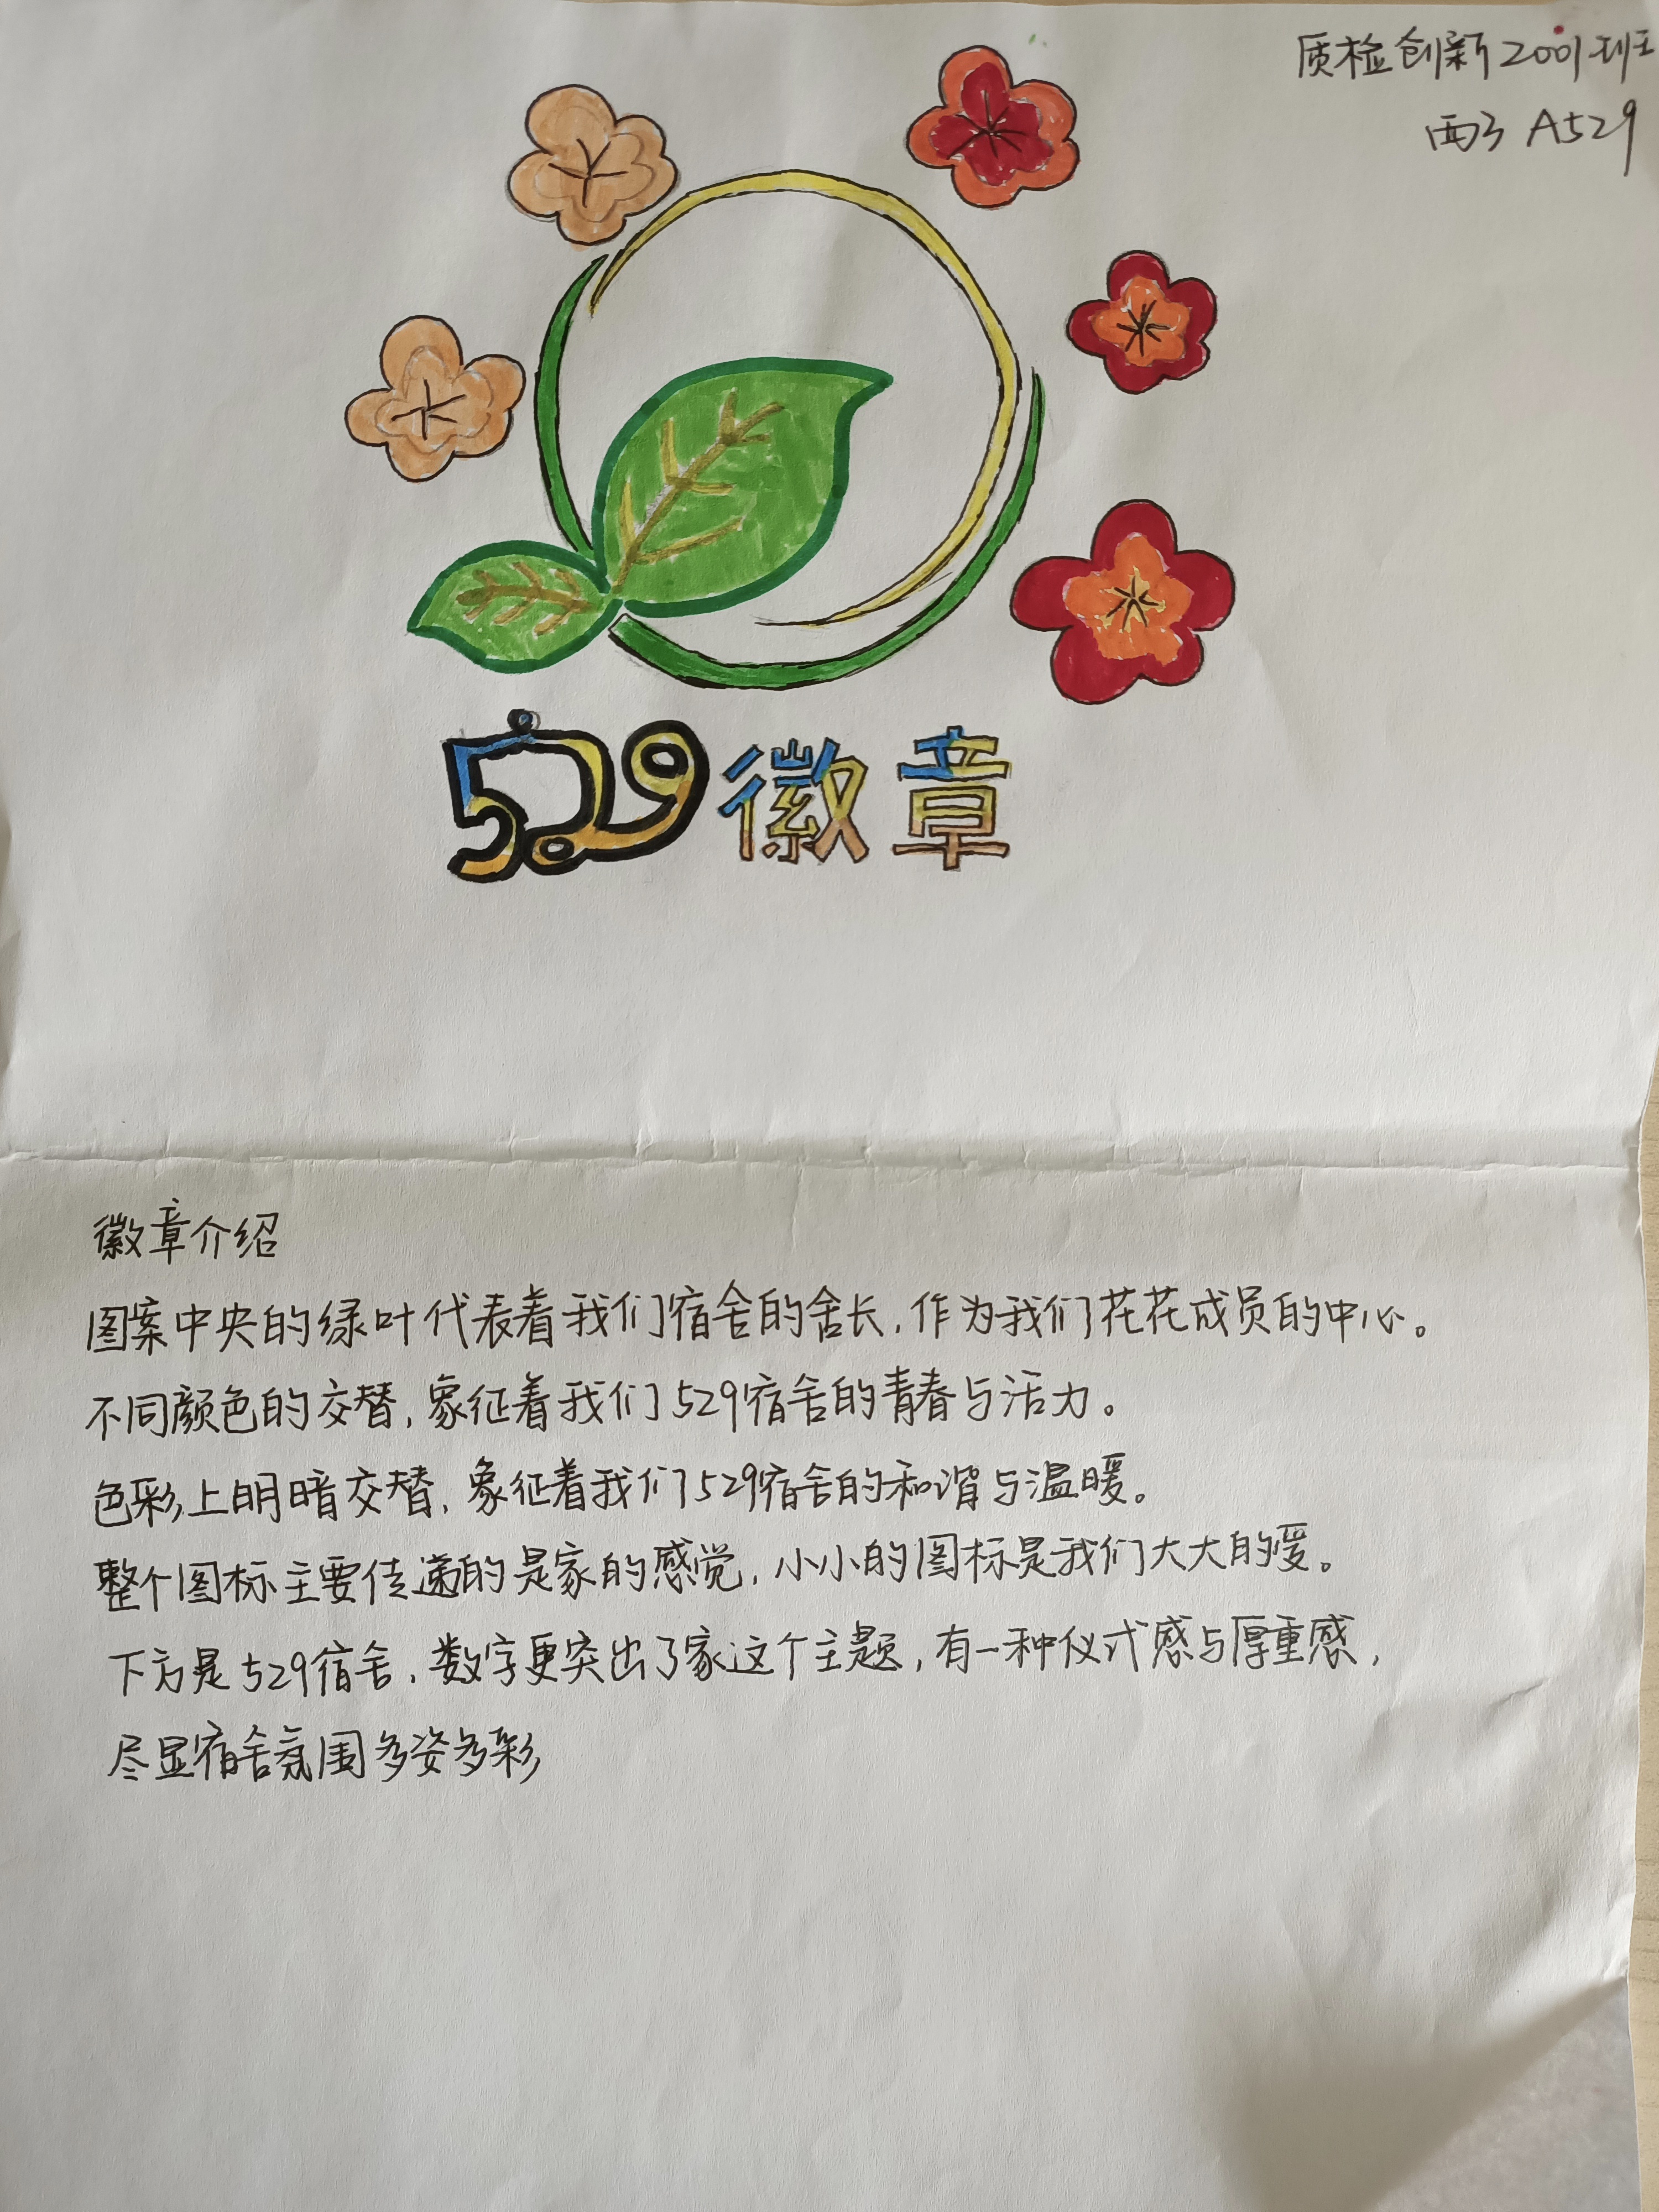 质检创新2001班
西3 A529
529徽章
徽章介绍
图案中央的绿叶代表着我们宿舍的舍长,作为我们花花成员的中心。
不同颜色的交替,象征着我们529宿舍的青春与活力。
色彩上明暗交替,象征着我们529宿舍的和谐与温暖。
整个图标主要传递的是家的感觉,小小的图标是我们大大的爱。
下方是529宿舍,数字更突出了家这个主题,有一种仪式感与厚重感,
尽显宿舍氛围多姿多彩